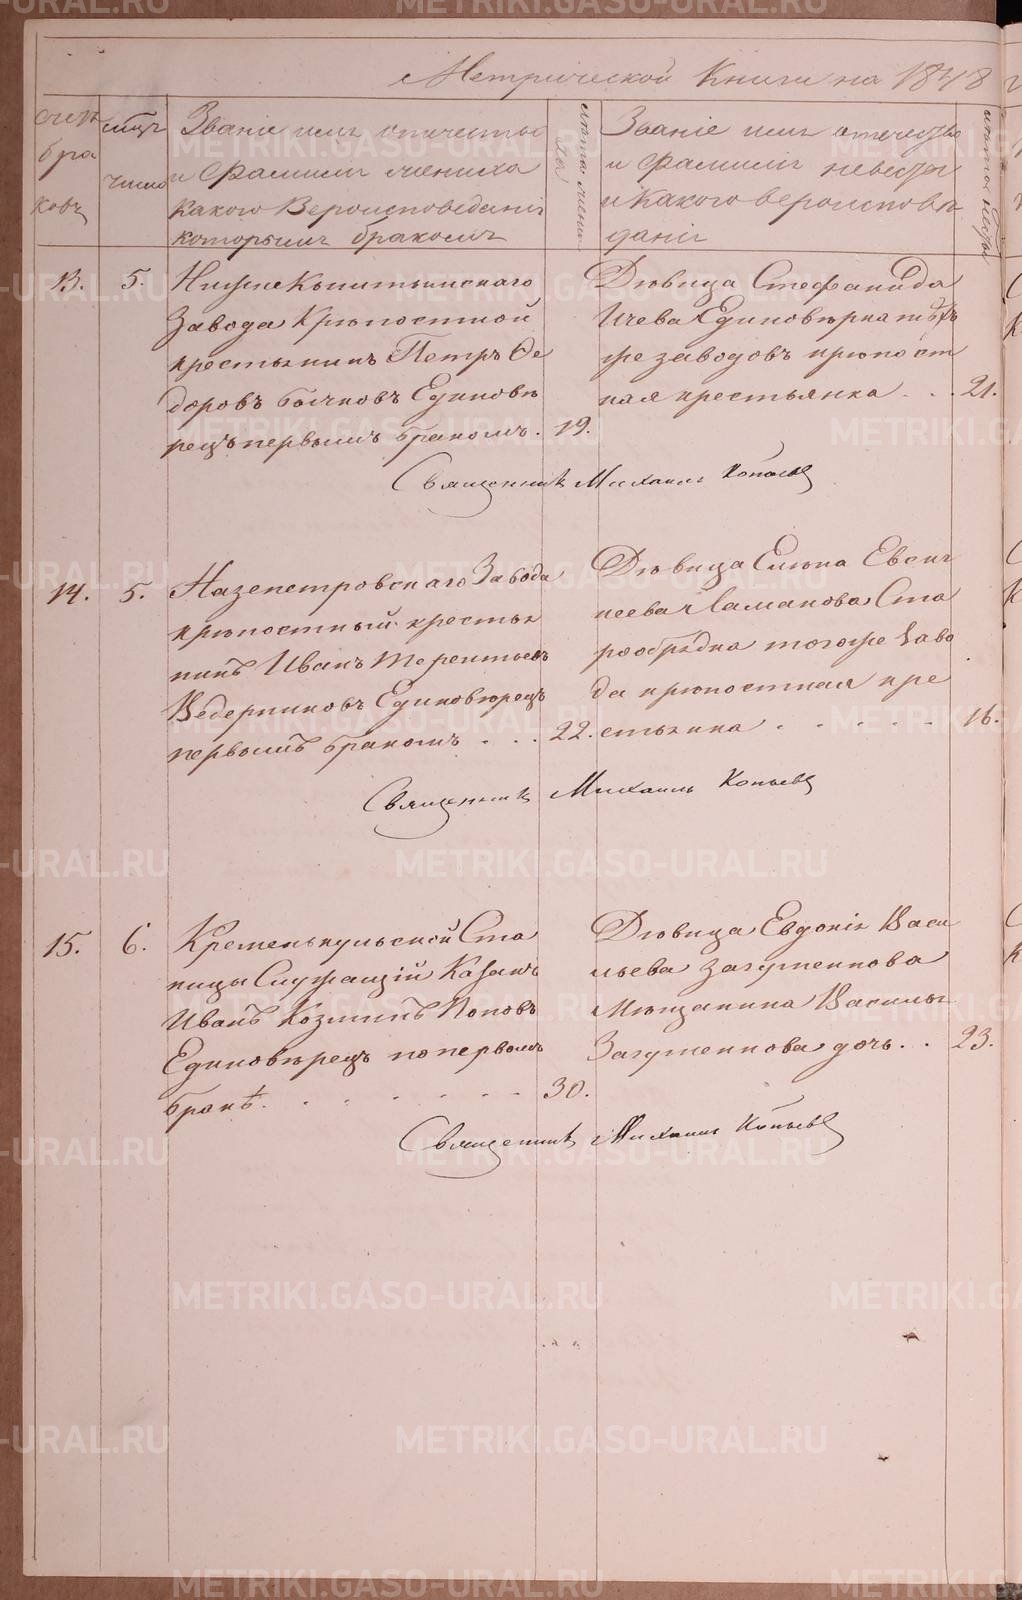 Метрической Книги на 1848
счетъ браковъ
мѣсяцъ число
Званіе имя отчество
и Фамилія жениха
какого Вероисповеданія
которымъ бракомъ
лѣта жениха
Званіе имя отечество
и Фамилія невесты
и Какого вероисповѣ
данія
лѣта невѣсты
13.
5.
НижнеКыштымскаго
Завода Крѣпостной
крестьянинъ Петръ Фе
доровъ Бычковъ Единовѣ
рецъ первымъ бракомъ. 19.
Дѣвица Стефанида
Единовѣрка тѣхъ
же заводовъ крѣпост
ная крестьянка . . . 21.
Священник Михаилъ Копьевъ
14.
5.
Назепетровскаго Завода
крѣпостный крестья
нинъ Иванъ Терентьевъ
Ведерниковъ Единовѣрецъ
первымъ бракомъ . . . 22.
Дѣвица Елена Евсиг
неева Маманова Ста
рообрядка тогоже Заво
да крѣпостная кре
стьянка . . . . . . 16.
Священник Михаилъ Копьевъ
15.
6.
Кременькульской Ста
ницы Служащій Казакъ
Иванъ Козминъ Поповъ
Единовѣрецъ по первомъ
бракѣ. . . . . . . 30.
Дѣвица Евдокія Васи
льева Загуменнова
Мѣщанина Василья
Загуменнова дочь. . . 23.
Священник Михаилъ Копьевъ
METRIKI.GASO-URAL.RU